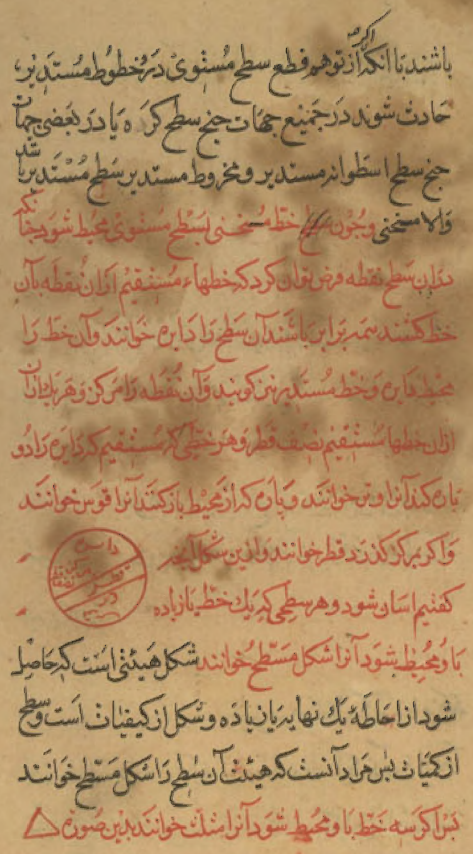 اگر
باشند با آنکه از توهم قطع سطح مستوی در خطوط مستدیر
حادث شوند در جمیع جهات چنج سطح کره یا در بعضی جهات
چنج سطح اسطوانه مستدیر و مخروط مستدیر سطح مستدیر باشد
والا منحنی وچون سطح خط منحنی بسطح مستوی محیط شود چنانکه
در آن سطح نقطه فرض توان کرد که خطهاء مستقیم از آن نقطه بآن
خط کشند همه برابر باشند آن سطح را دایره خوانند و آن خط را
محیط دایره و خط مستدیر نیز کویند و آن نقطه را مرکز و هر یک از آن
از آن خطها مستقیم نصف قطر و هر خطی که مستقیم که دایره را دو
پاره کند آنرا وتر خوانند و پاره که از محیط باز کند آنرا قوس خوانند
و اکر بمرکز کذرد قطر خوانند و از این شکل آنچه
کفتیم اسان شود و هر سطحی که یک خط یا زیاده
دایره
قطر
وتر
باو محیط شود آنرا شکل مسطح خوانند شکل هیئتی است که حاصل
شود از احاطه یک نهایه یا زیاده و شکل از کیفیات است و سطح
از کمیات پس مراد آنست که هیئت آن سطح را شکل مسطح خوانند
پس اکر سه خط باو محیط شود آنرا مثلث خوانند بدین صورة